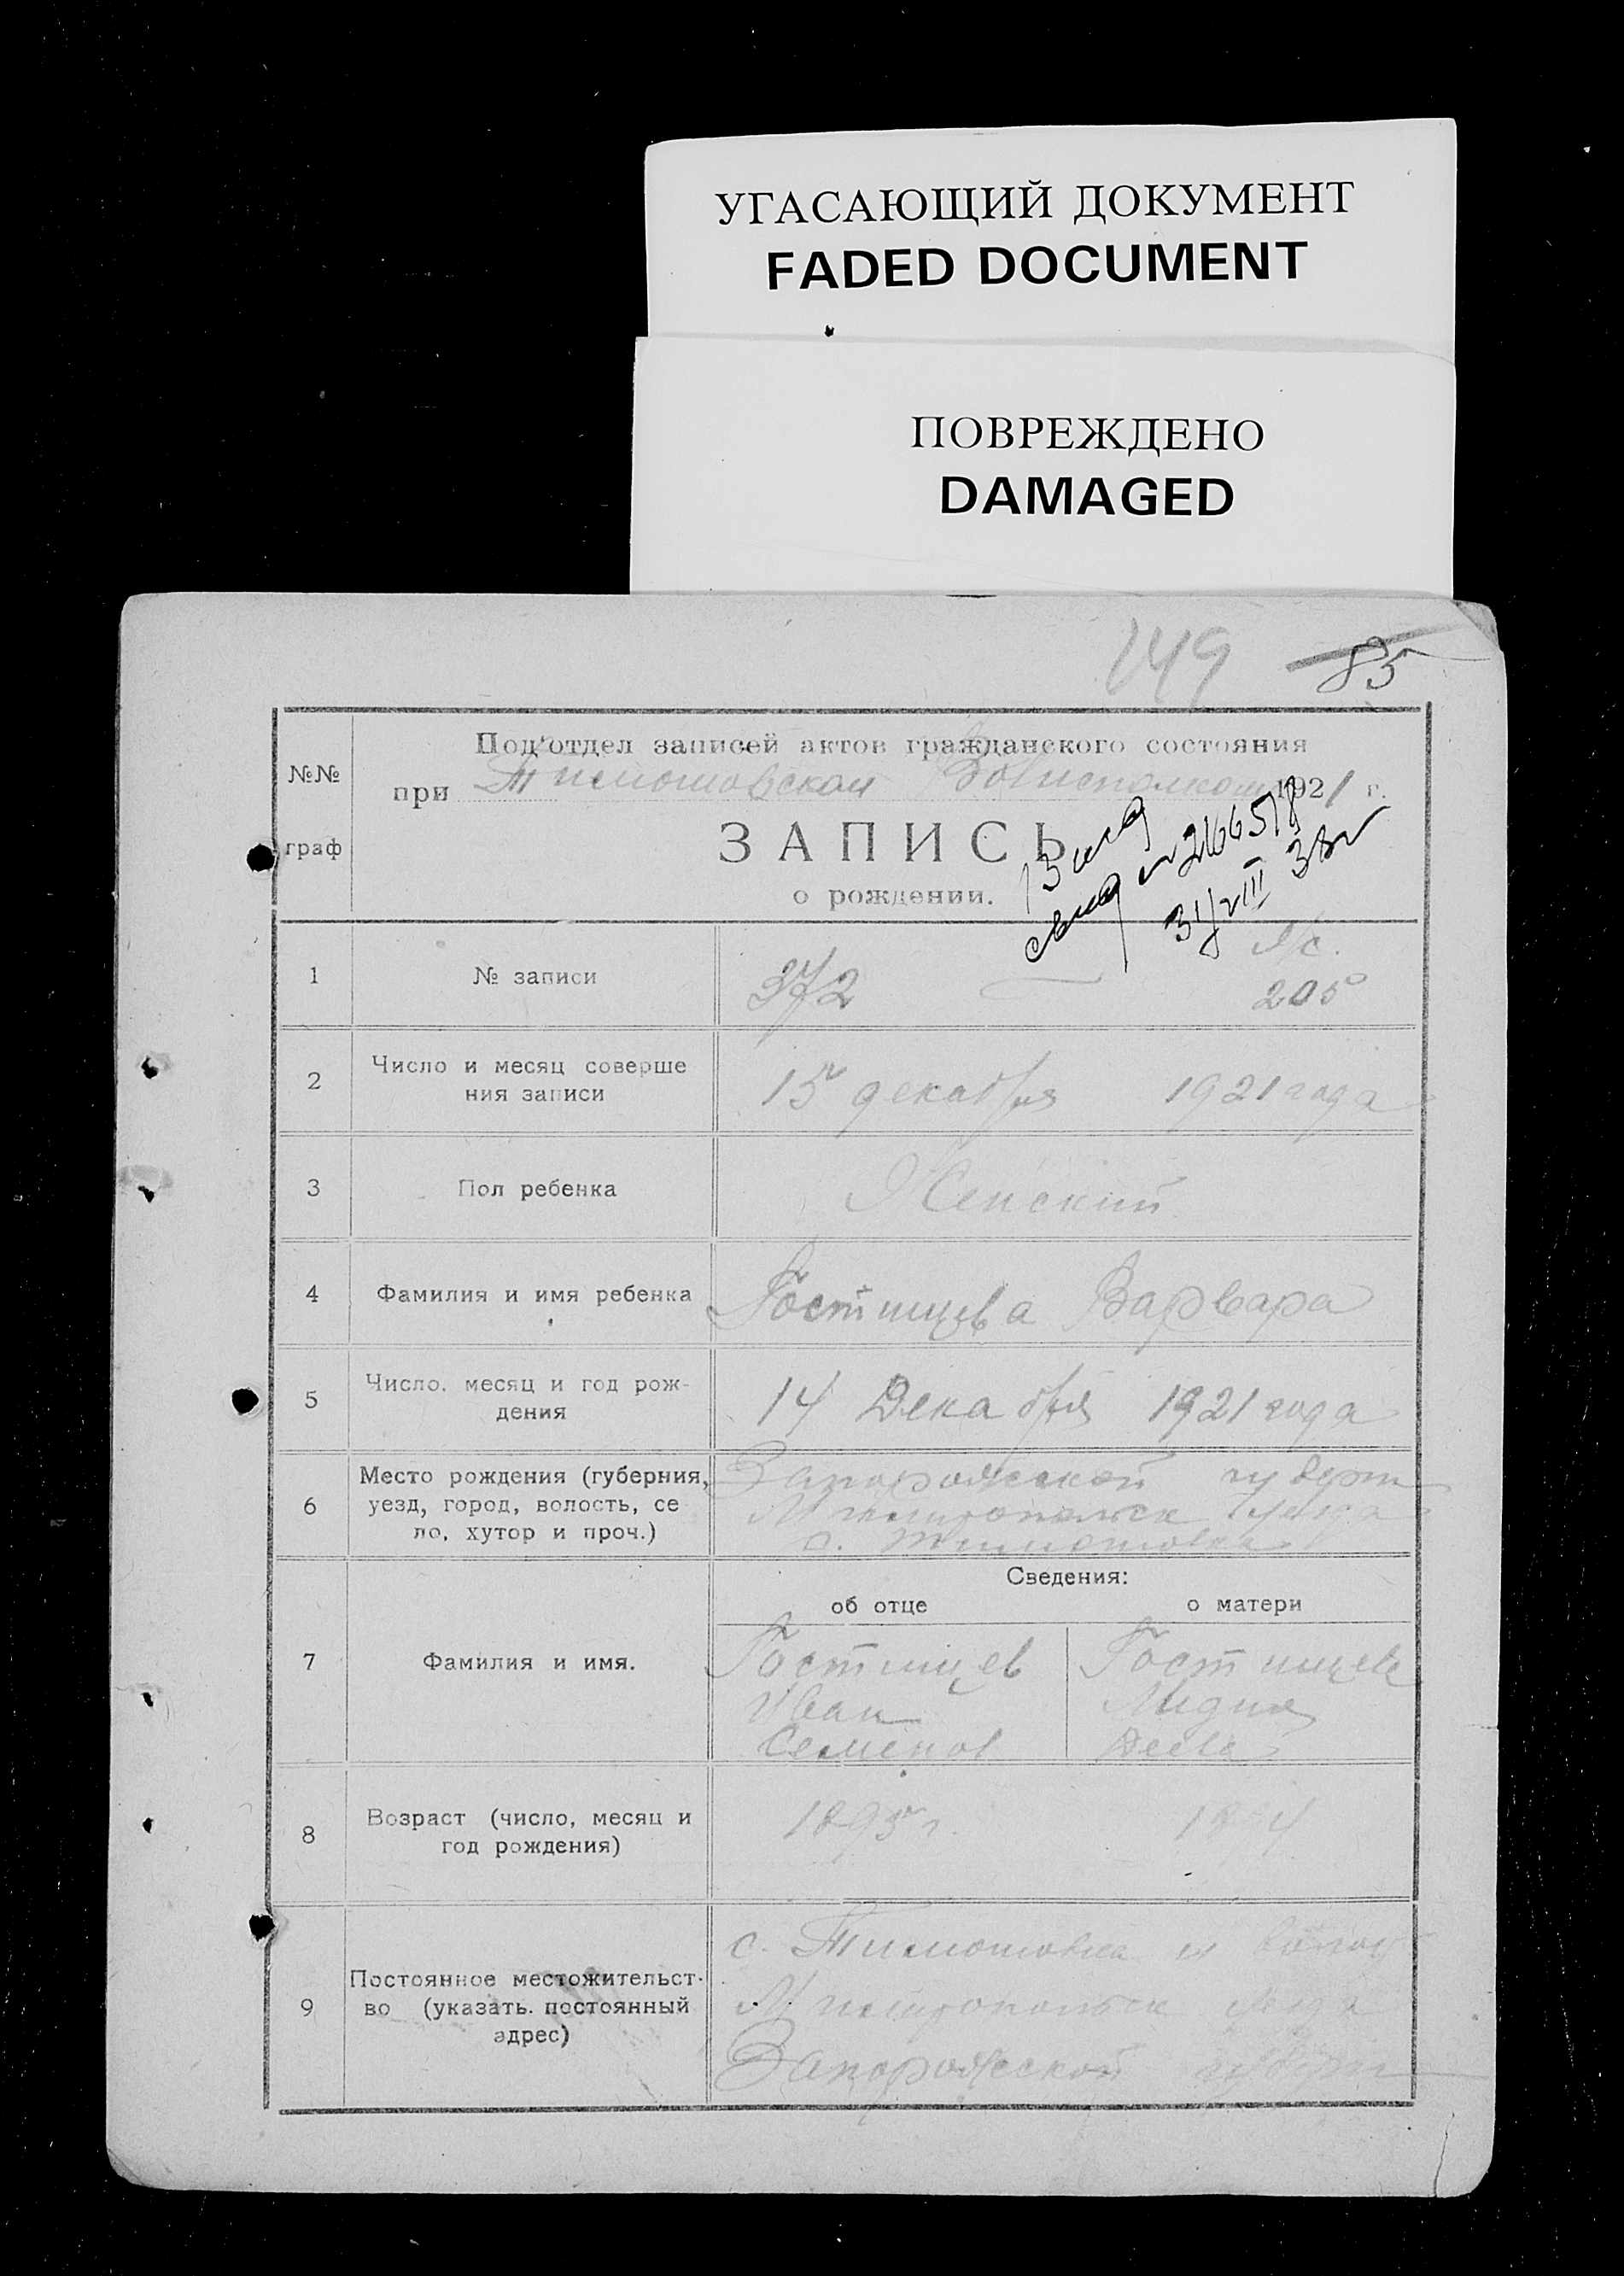 УГАСАЮЩИЙ ДОКУМЕНТ
FADED DOCUMENT
ПОВРЕЖДЕНО
DAMAGED
149 85
№№ граф
Под'отдел записей актов гражданского состояния
при Тимошовском Волисполкоме 1921 г.
ЗАПИСЬ
о рождении.
№ 266578
31/VIII 38г
1 № записи 372
205
2 Число и месяц соверше
ния записи 15 декабря 1921 года
3 Пол ребенка Женский
4 Фамилия и имя ребенка Гостищева Варвара
5 Число, месяц и год рож-
дения 14 Декабря 1921 года
6 Место рождения (губерния,
уезд, город, волость, се
ло, хутор и проч.)
Запорожской губерн
Мелитопольск уезда
с. Тимошовка
Сведения:
об отце о матери
7 Фамилия и имя.
Гостищев
Иван
Семенов
Гостищева
Лидия
8 Возраст (число, месяц и
год рождения) 1895 г.
9 Постоянное местожительст-
во (указать постоянный
адрес)
с. Тимошовка и волос
Мелитопольск уезда
Запорожской губерн